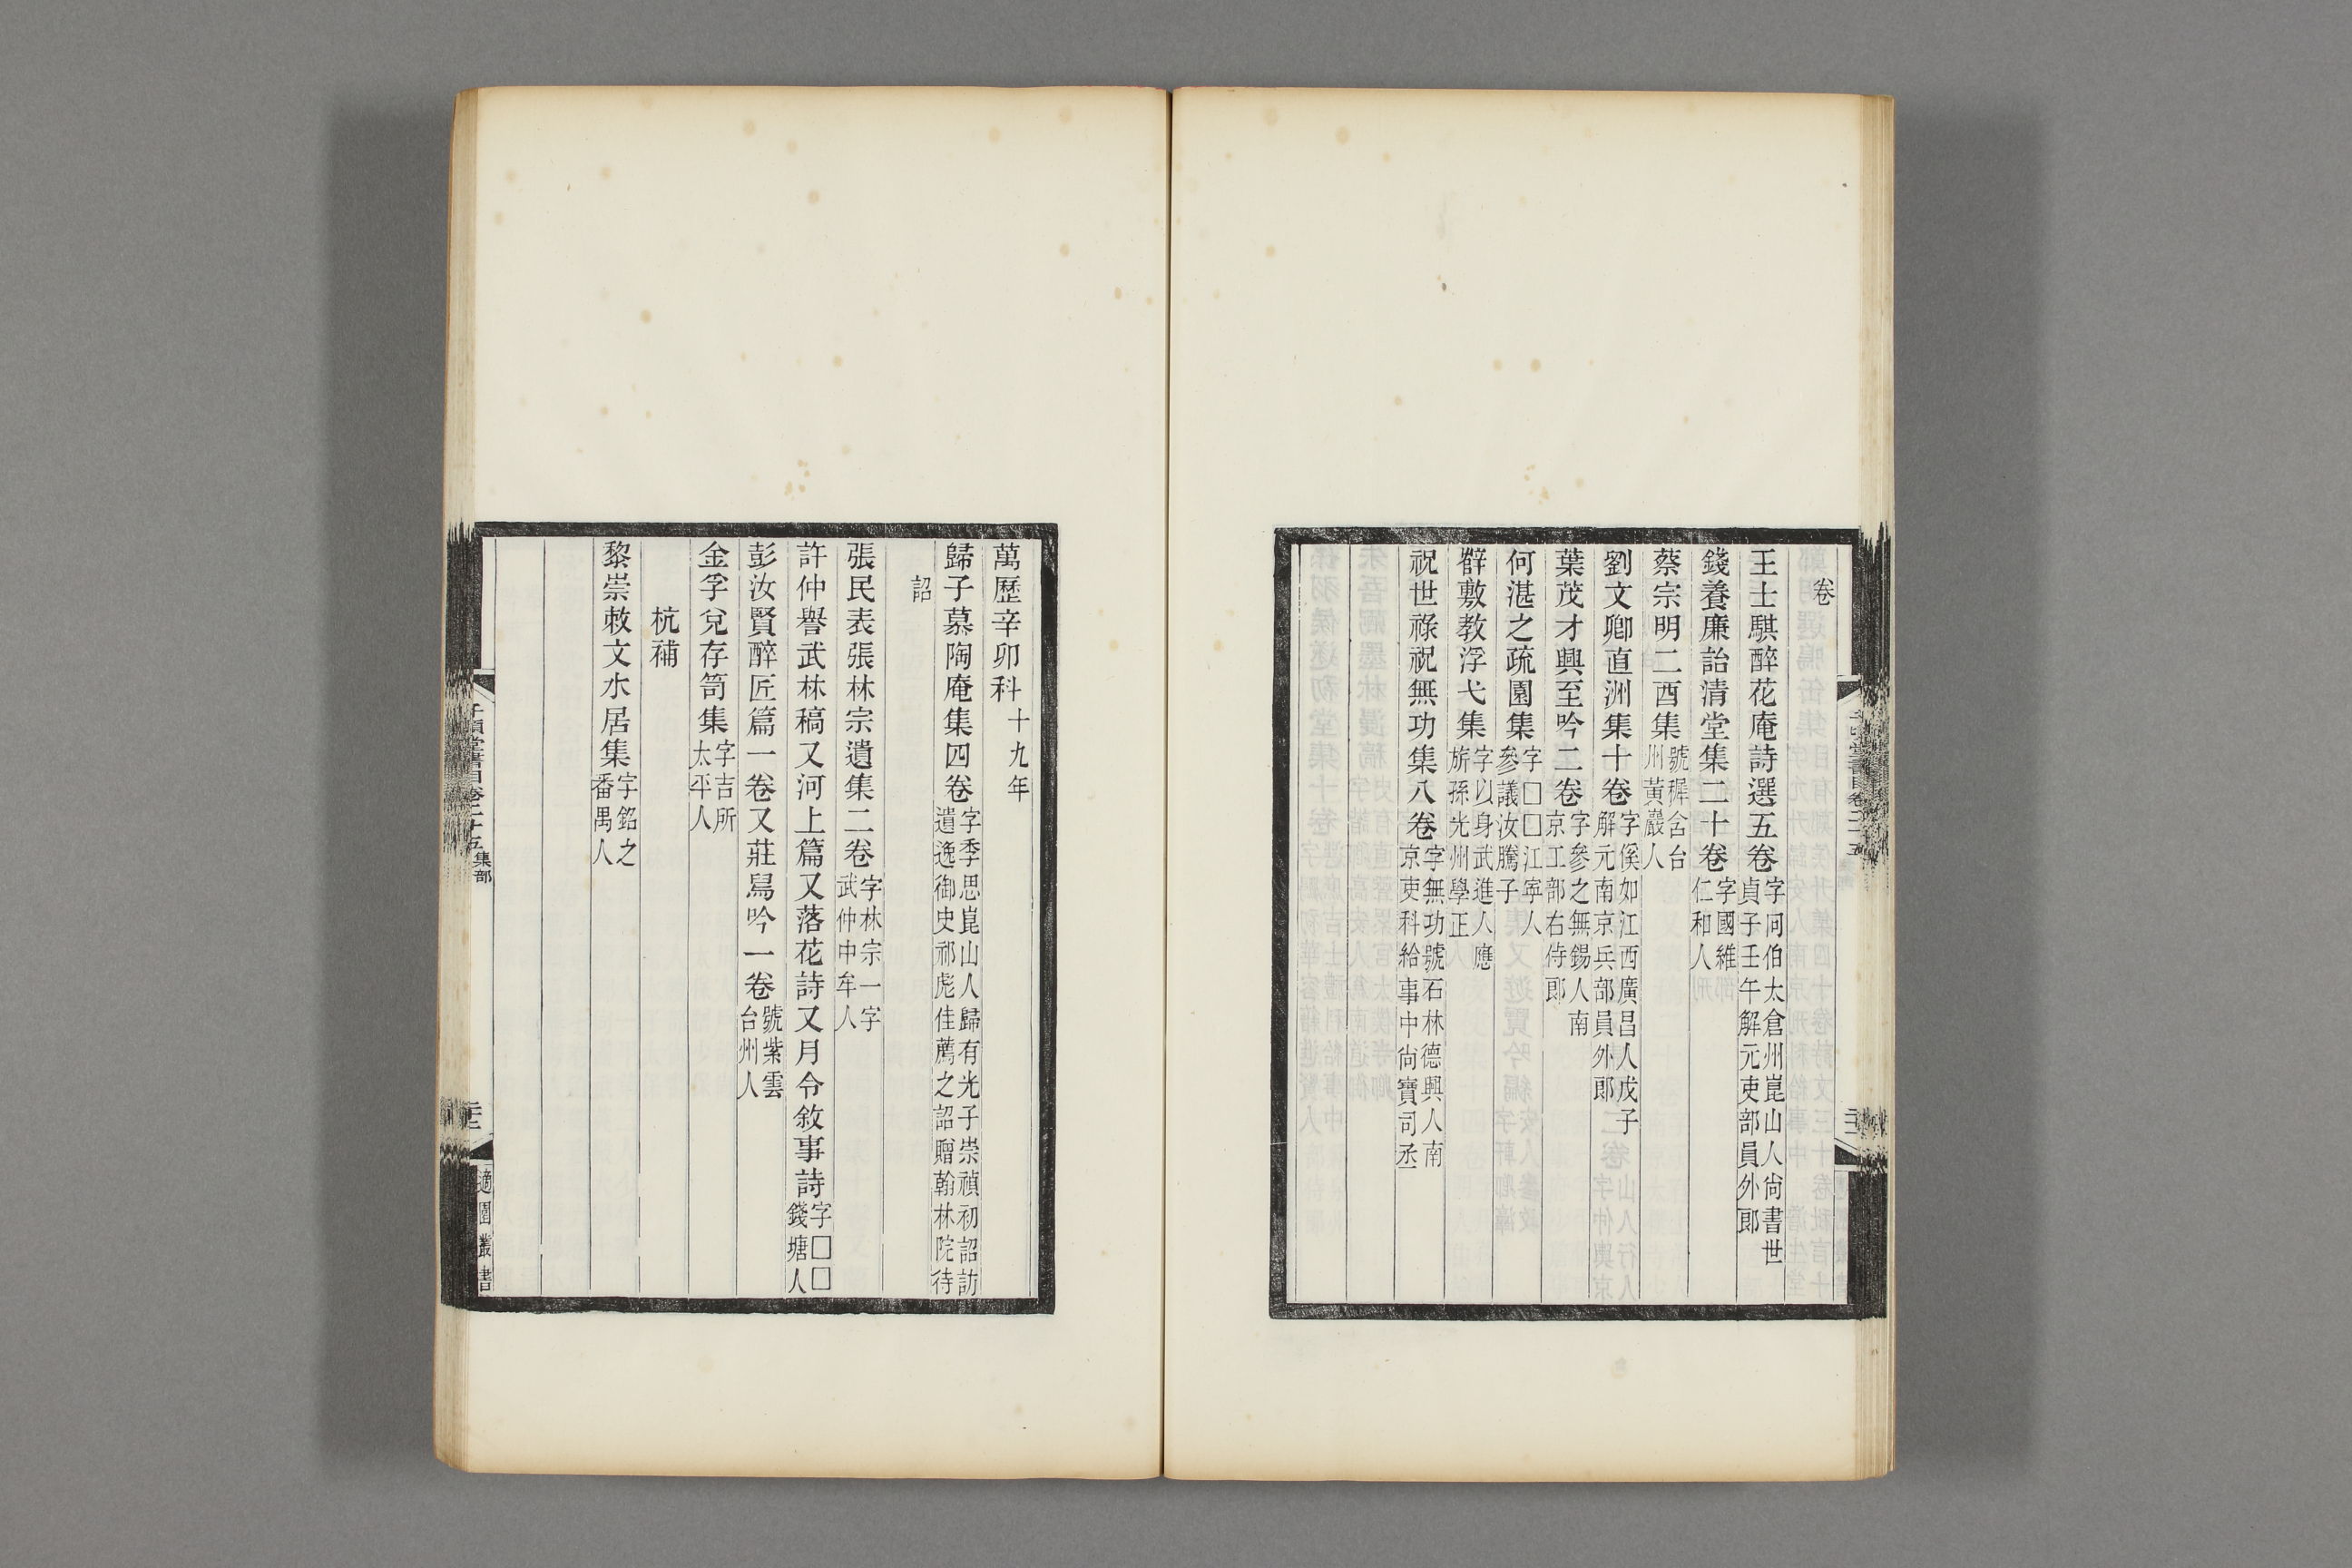 卷
王士騏醉花庵詩選五卷字冏伯太倉州崑山人尚書世貞子壬午解元吏部員外郎
錢養廉詒清堂集二十卷字國維仁和人
蔡宗明二酉集號穉含台州黃巖人
劉文卿直洲集十卷字傒如江西廣昌人戊子解元南京兵部員外郎
葉茂才興至吟二卷字參之無錫人南京工部右侍郎
何湛之疏園集字□□江寧人參議汝騰子
薜敷教浮弋集字以身武進人應旂孫光州學正
祝世祿祝無功集八卷字無功號石林德興人南京吏科給事中尚寶司丞
萬歷辛卯科十九年
歸子慕陶庵集四卷字季思崑山人歸有光子崇禎初詔訪遺逸御史祁彪佳薦之詔贈翰林院待
詔
張民表張林宗遺集二卷字林宗一字武仲中牟人
許仲譽武林稿又河上篇又落花詩又月令敘事詩字□□錢塘人
彭汝賢醉匠篇一卷又莊舄吟一卷號紫雲台州人
金孚兌存笥集字吉所太平人
杭補
黎崇敕文水居集字銘之番禺人
千頃堂書目卷二十五 集部
適園叢書